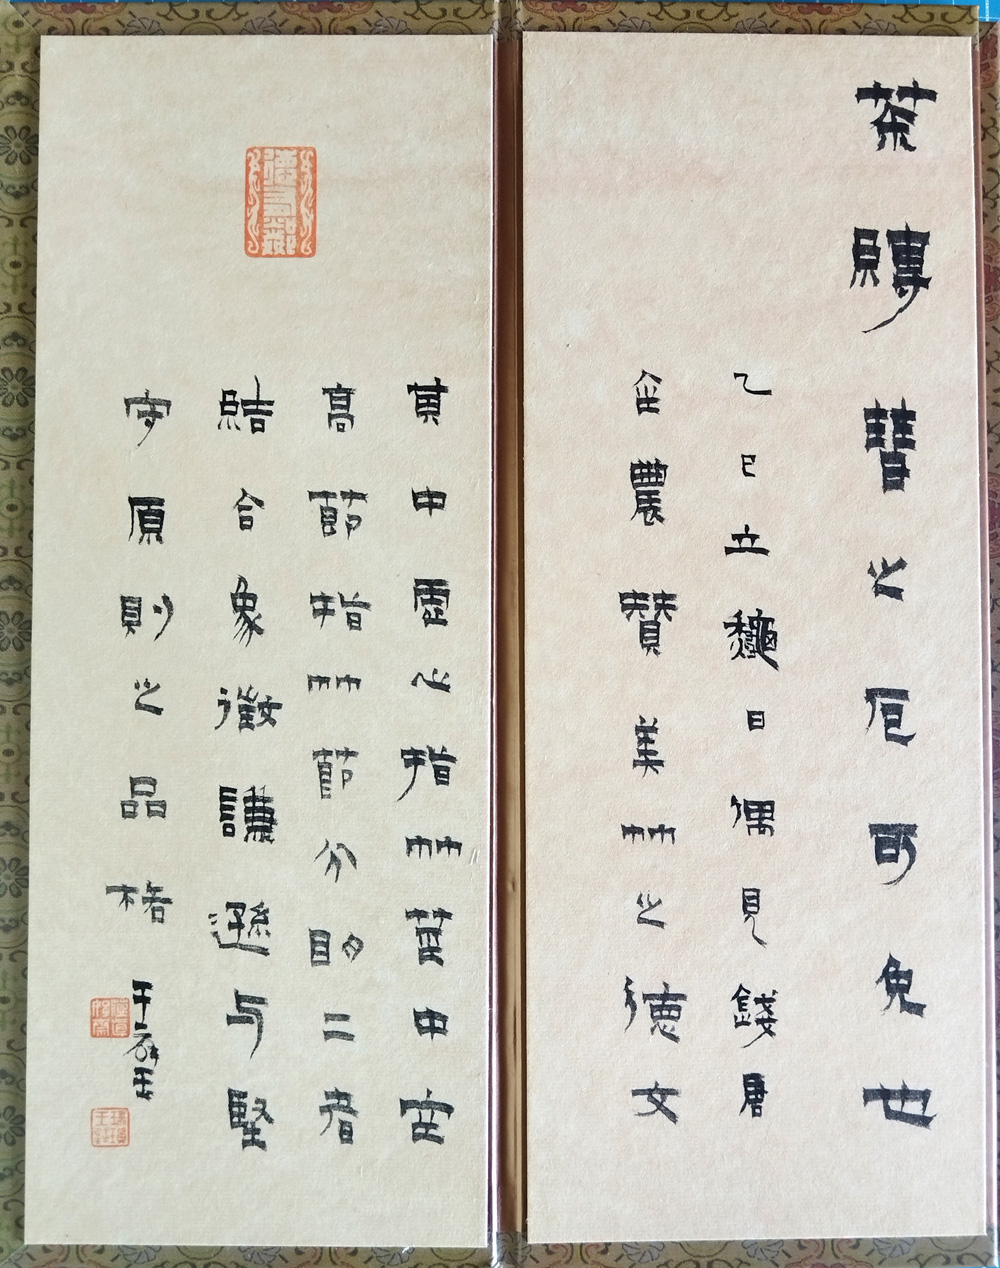 茶賻彗之厄可免也
乙巳立龝日偶見錢唐
金農贊美竹之德文
其中虛心指竹莖中空
高節指竹節分明二者
結合象徵謙遜与堅
守原則之品格